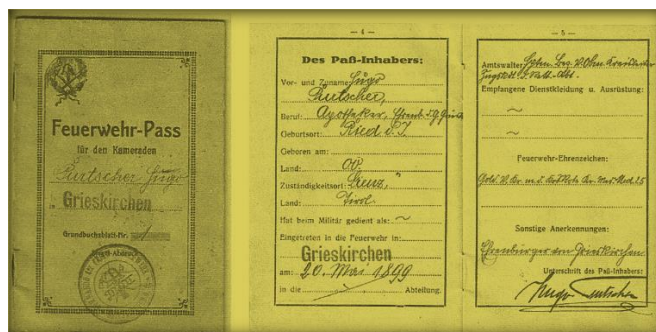 Feuerwehr-Pass
für den Kameraden
Zutscher Hugo
in Grieskirchen
Grundbuchsblatt-Nr. 1
— 4 —
Des Paß-Inhabers:
Vor- und Zuname: Hugo
Zutscher,
Beruf: Apotheker,
Geburtsort: Ried i. I.
Geboren am:
Land: OÖ.
Zuständigkeitsort: Lienz,
Land: Tirol.
Hat beim Militär gedient als: ~
Eingetreten in die Feuerwehr in:
Grieskirchen
am: 20. Mai 1899
in die Abteilung.
— 5 —
Amtswalter:
Empfangene Dienstkleidung u. Ausrüstung:
~
~
Feuerwehr-Ehrenzeichen:
Sonstige Anerkennungen:
Ehrenbürger von Grieskirchen
Unterschrift des Paß-Inhabers:
Hugo Zutscher